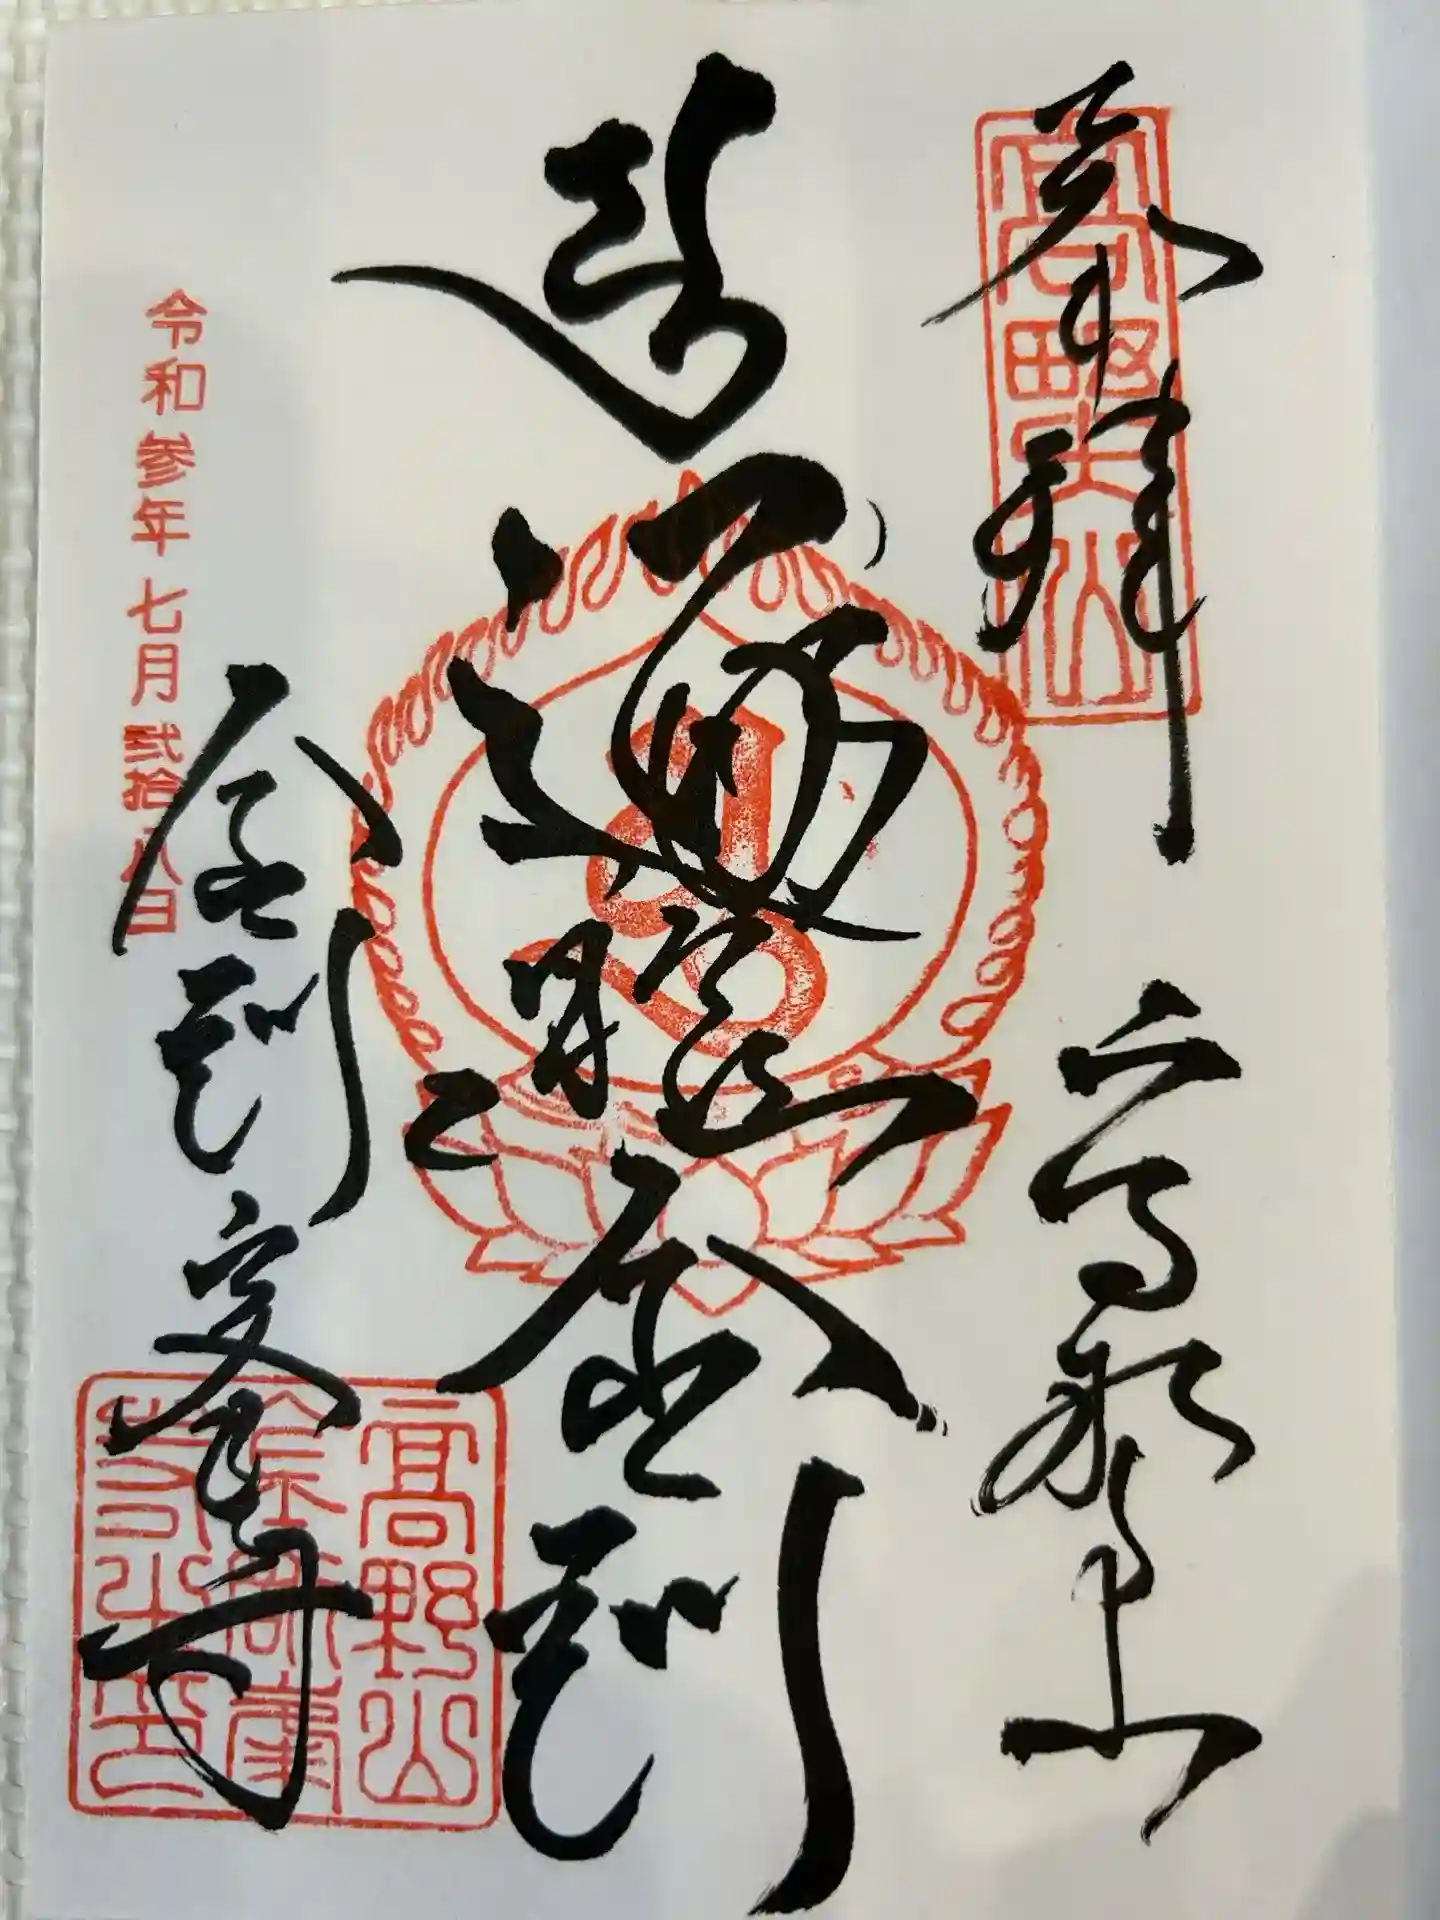 高野山
奉拝
高野山
金剛
令和参年七月弐拾八日
金剛峯寺
高野山
金剛峯
寺之印